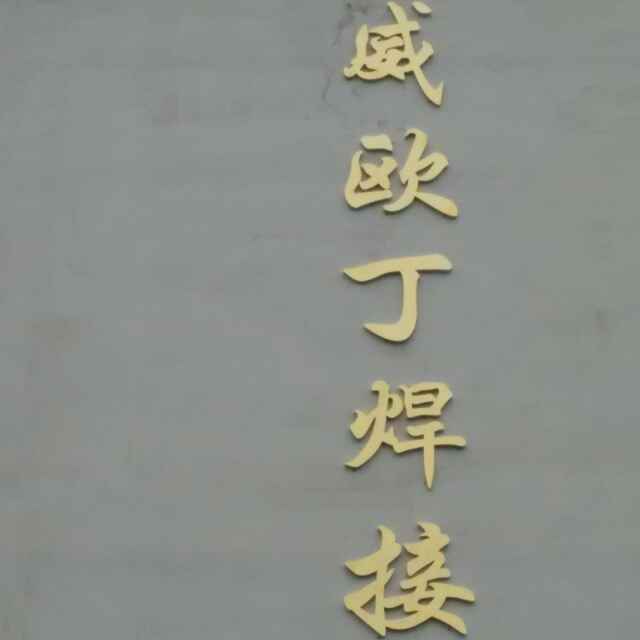 威欧丁焊接